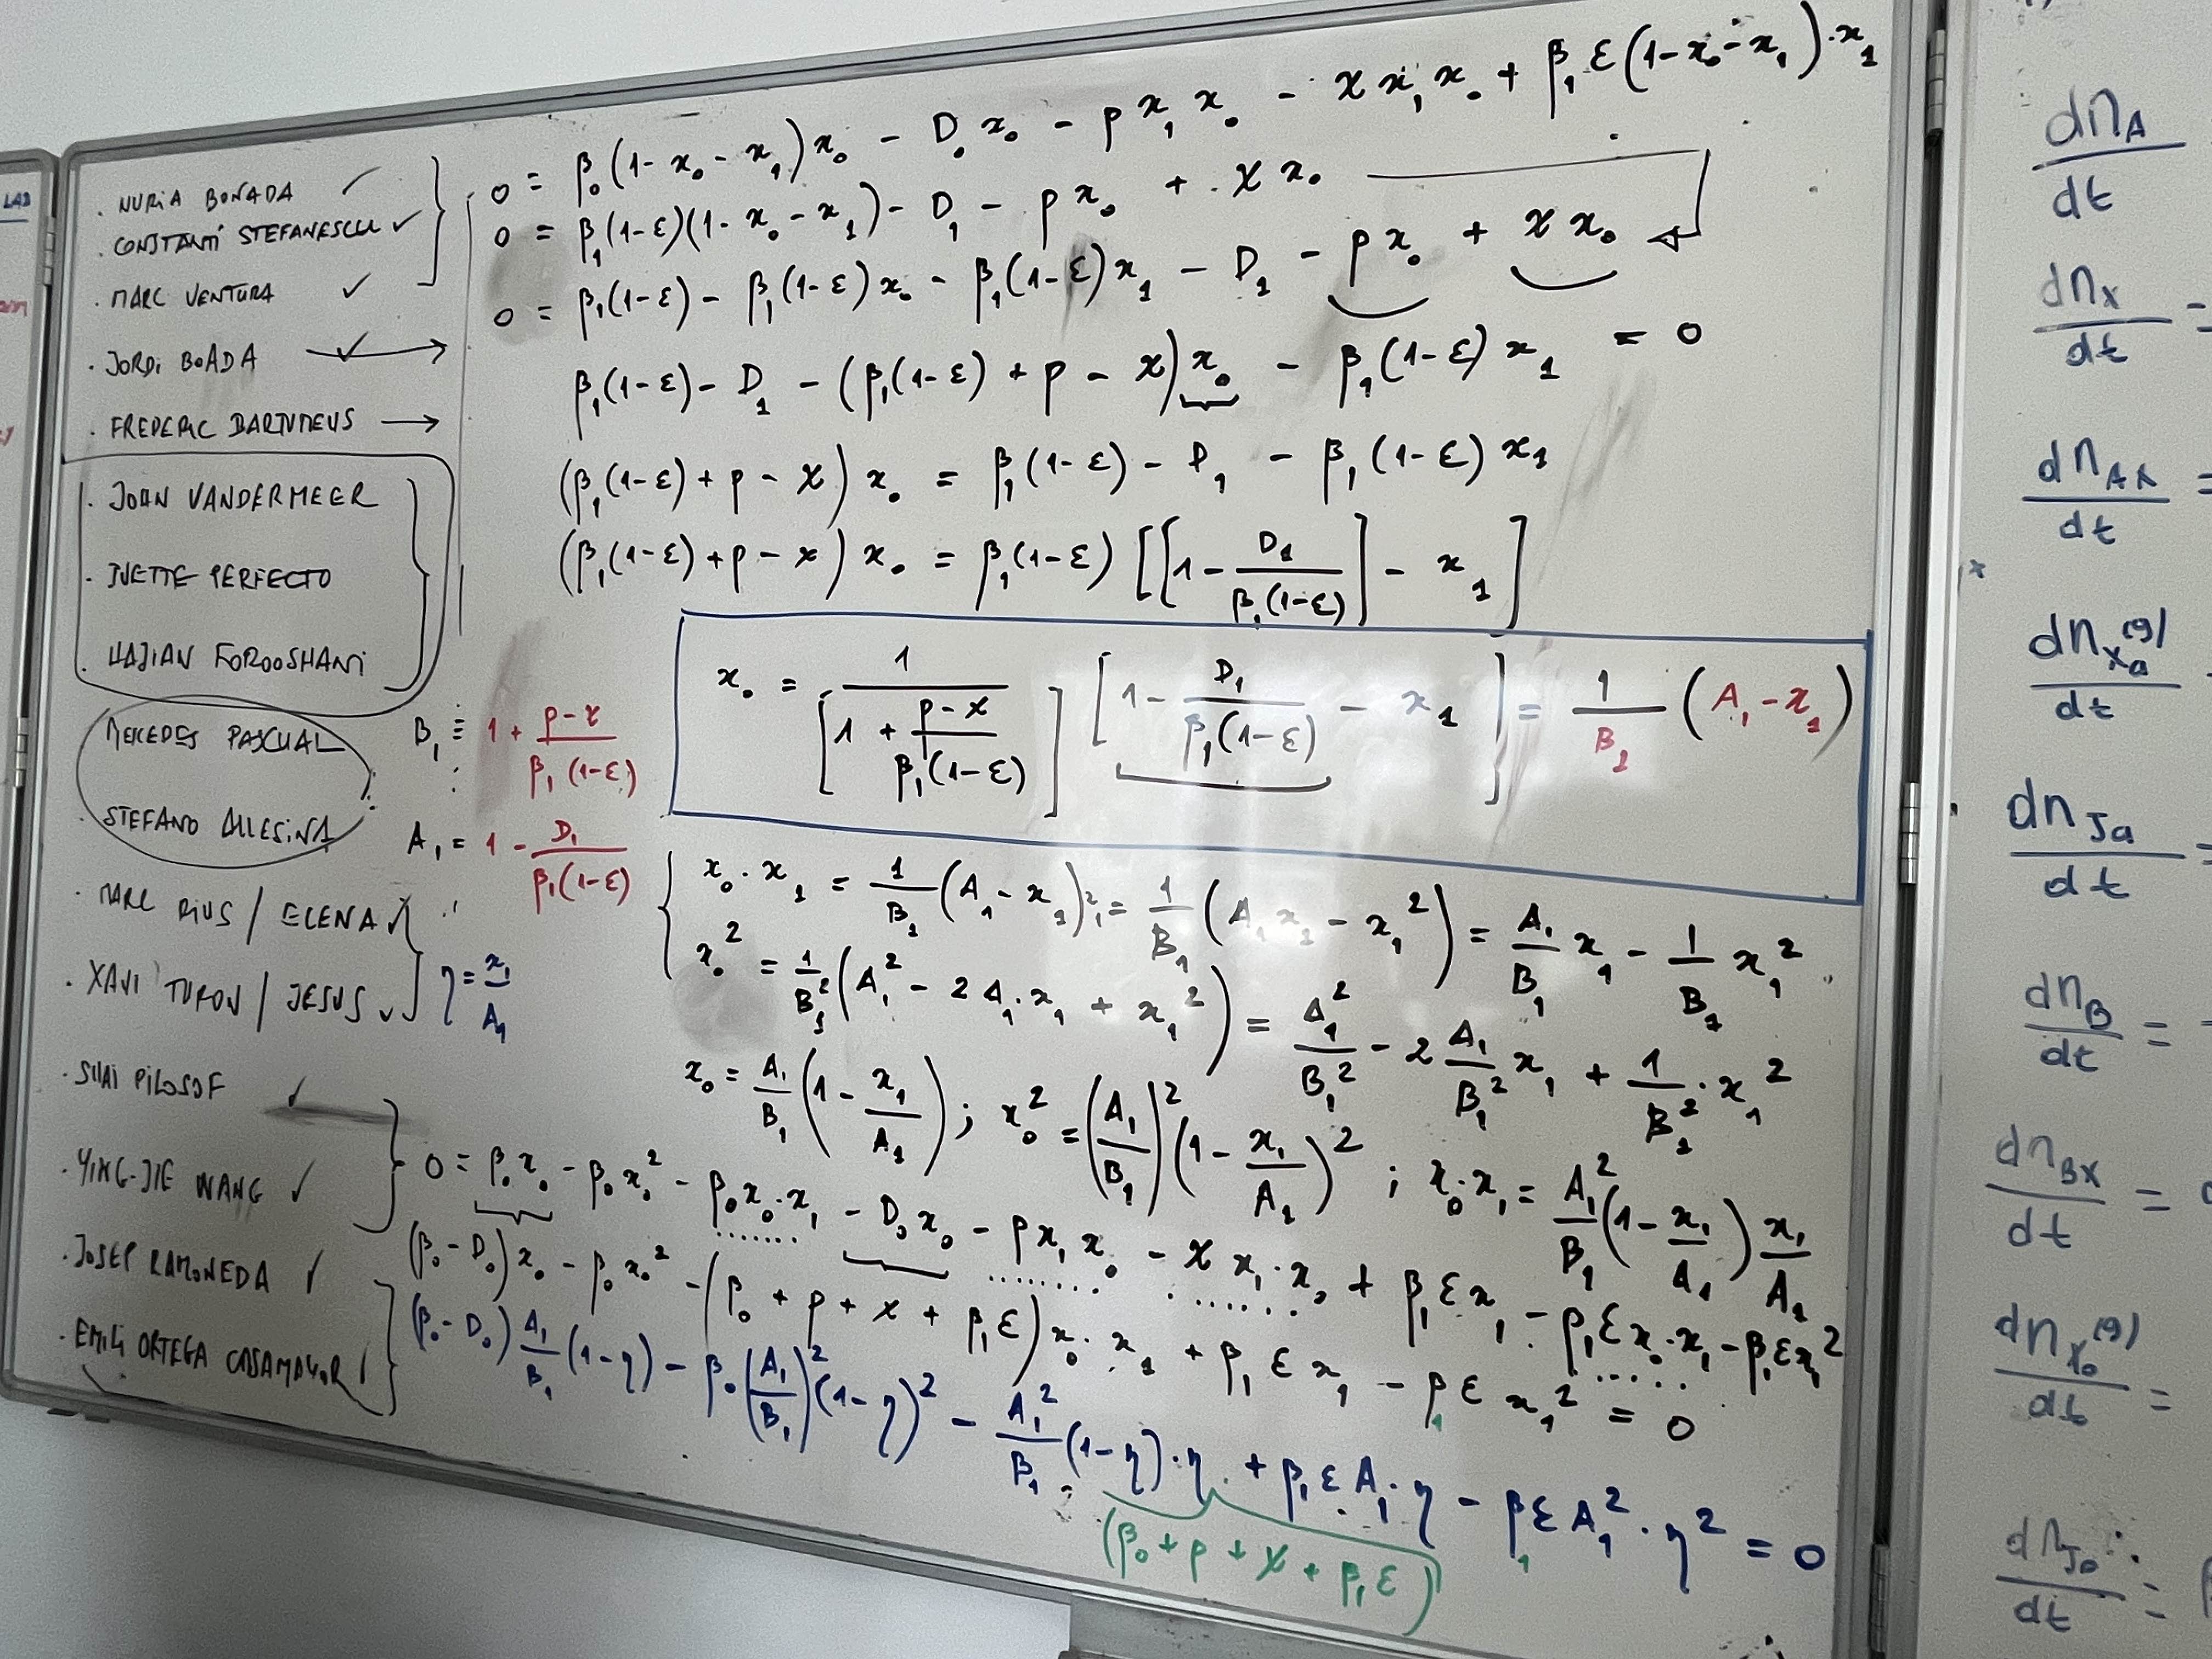 LAB
· NURIA BONADA ✓
· CONSTANTÍ STEFANESCU ✓
· MARC VENTURA ✓
· JORDI BOADA ✓ →
· FREDERIC BARTUMEUS →
· JOHN VANDERMEER
· IVETTE PERFECTO
· HAJIAN FOROOSHANI
MERCEDES PASCUAL
STEFANO ALLESINA
· MARC RIUS / ELENA ✓
· XAVI TURON / JESUS ✓
· SHAI PILOSOF ✓
· YING-JIE WANG ✓
· JOSEP RAMONEDA ✓
· EMILI ORTEGA CASAMAYOR ✓
0 = β₀(1 - x₀ - x₁)x₀ - D₀x₀ - ρx₁x₀ - χx₁x₀ + β₁ε(1 - x₀ - x₁)·x₁
0 = β₁(1-ε)(1 - x₀ - x₁) - D₁ - ρx₀ + χx₀
0 = β₁(1-ε) - β₁(1-ε)x₀ - β₁(1-ε)x₁ - D₁ - ρx₀ + χx₀
β₁(1-ε) - D₁ - (β₁(1-ε) + ρ - χ)x₀ - β₁(1-ε)x₁ = 0
(β₁(1-ε) + ρ - χ) x₀ = β₁(1-ε) - D₁ - β₁(1-ε) x₁
(β₁(1-ε) + ρ - χ) x₀ = β₁(1-ε) [[1 - D₁/β₁(1-ε)] - x₁]
x₀ = 1/[1 + (ρ-χ)/β₁(1-ε)] [1 - D₁/β₁(1-ε) - x₁] = 1/B₁ (A₁ - x₁)
B₁ ≡ 1 + (ρ-χ)/β₁(1-ε)
A₁ = 1 - D₁/β₁(1-ε)
η = x₁/A₁
x₀·x₁ = 1/B₁ (A₁ - x₁)x₁ = 1/B₁ (A₁x₁ - x₁²) = A₁/B₁ x₁ - 1/B₁ x₁²
x₀² = 1/B₁² (A₁² - 2A₁·x₁ + x₁²) = A₁²/B₁² - 2 A₁/B₁² x₁ + 1/B₁² · x₁²
x₀ = A₁/B₁ (1 - x₁/A₁) ; x₀² = (A₁/B₁)² (1 - x₁/A₁)² ; x₀·x₁ = A₁²/B₁ (1 - x₁/A₁) x₁/A₁
0 = β₀x₀ - β₀x₀² - β₀x₀·x₁ - D₀x₀ - ρx₁x₀ - χx₁·x₀ + β₁εx₁ - β₁εx₀·x₁ - β₁εx₁²
(β₀ - D₀)x₀ - β₀x₀² - (β₀ + ρ + χ + β₁ε)x₀·x₁ + β₁εx₁ - β₁εx₁² = 0
(β₀ - D₀) A₁/B₁ (1-η) - β₀(A₁/B₁)²(1-η)² - A₁²/B₁ (1-η)·η + β₁εA₁·η - β₁εA₁²·η² = 0
(β₀ + ρ + χ + β₁ε)
dn_A/dt
dn_X/dt =
dn_AA/dt =
dn_Xa^(g)/dt
dn_Ja/dt =
dn_B/dt =
dn_BX/dt =
dn_Xb^(g)/dt =
dn_Jb/dt =